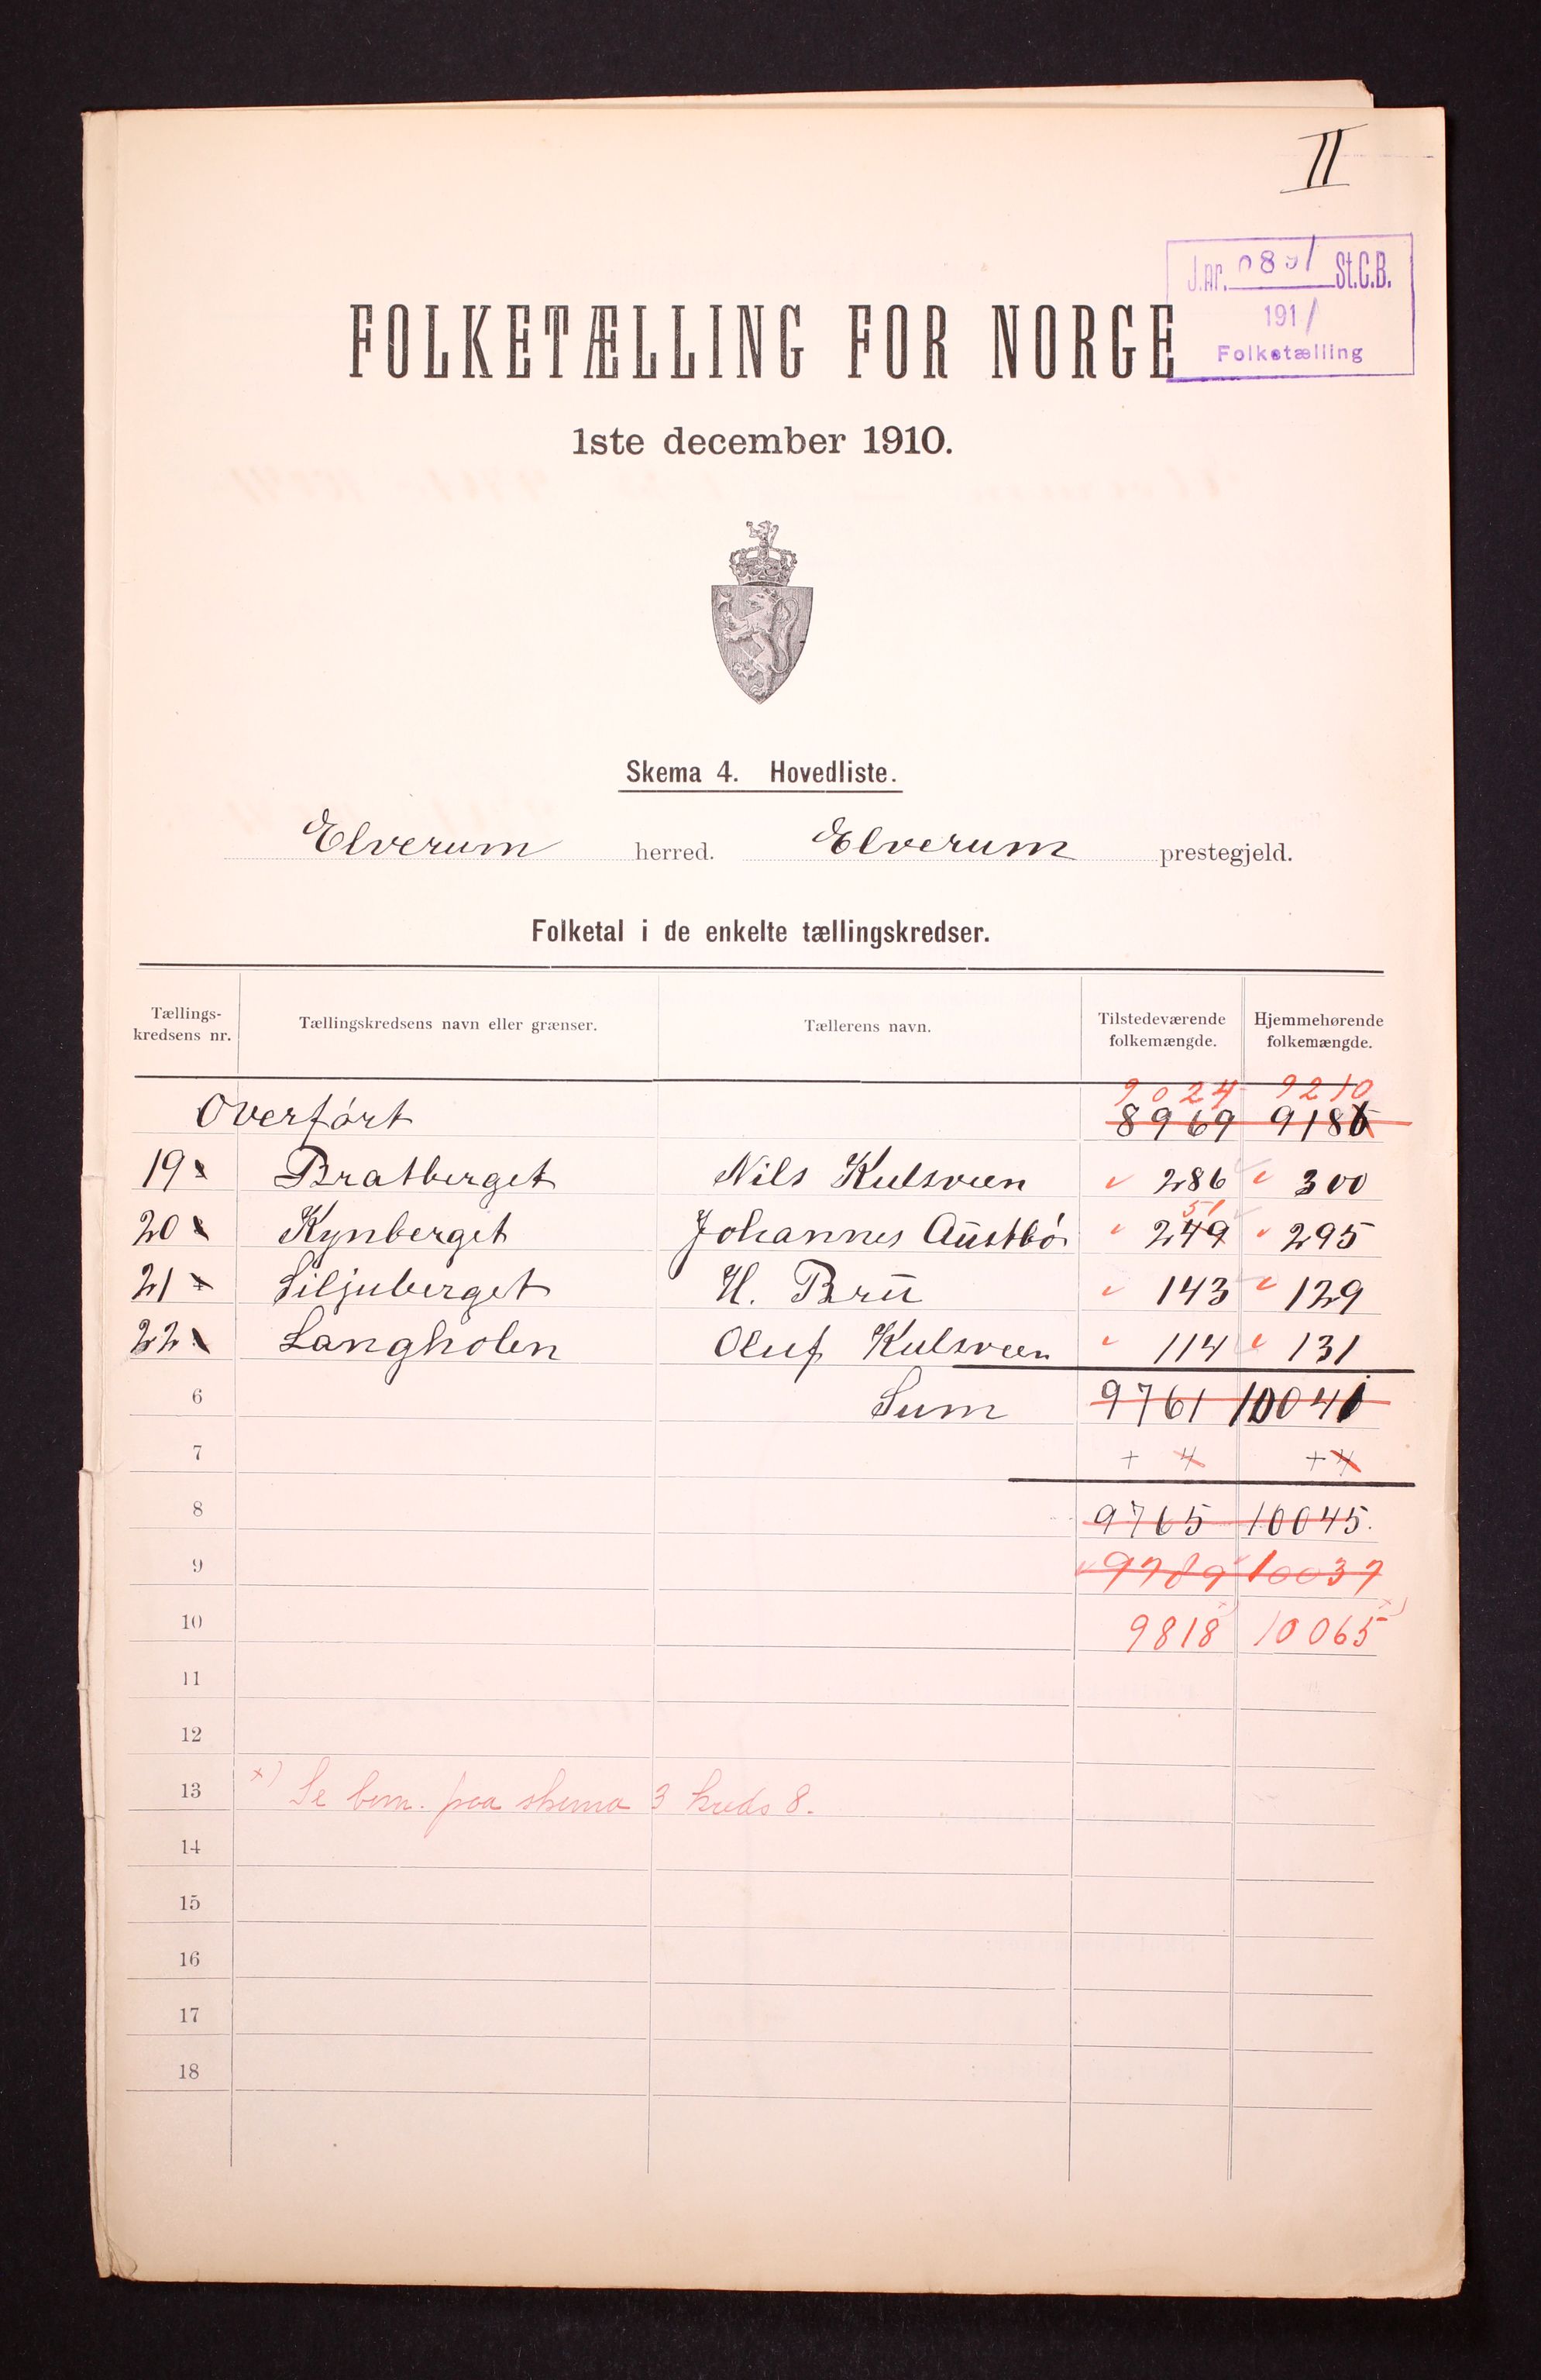 II
J.nr. St.C.B.
1911
Folketælling
FOLKETÆLLING FOR NORGE
1ste december 1910.
Skema 4. Hovedliste.
Elverum herred. Elverum prestegjeld.
Folketal i de enkelte tællingskredser.
Tællings-kredsens nr. Tællingskredsens navn eller grænser. Tællerens navn. Tilstedeværende folkemængde. Hjemmehørende folkemængde.
9024 9210
Overført 8969 9186
19 Bratberget Nils Kulsveen 286 300
51
20 Kynberget Johannes Austbø 249 295
21 Siljuberget H. Bru 143 129
22 Langholen Oluf Kulsveen 114 131
6 Sum 9761 10041
7 + 4 + 4
8 9765 10045.
9 9789 10037
10 9818 x) 10065 x)
11
12
13 x) Se bem. paa skema 3 kreds 8.
14
15
16
17
18